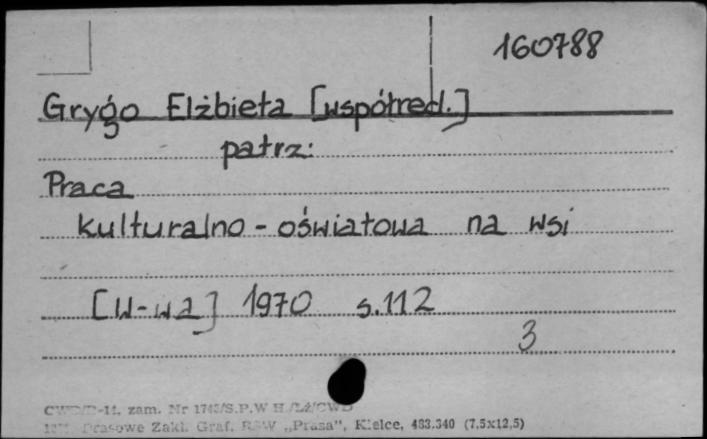 160788
Grygo Elżbieta [współred.]
patrz:
Praca
kulturalno - oświatowa na wsi
[W-wa] 1970 s.112
3
-14. zam. Nr S.P.W
Prasowe Zakł. Graf. RSW „Prasa", Kielce, 483.340 (7,5x12,5)